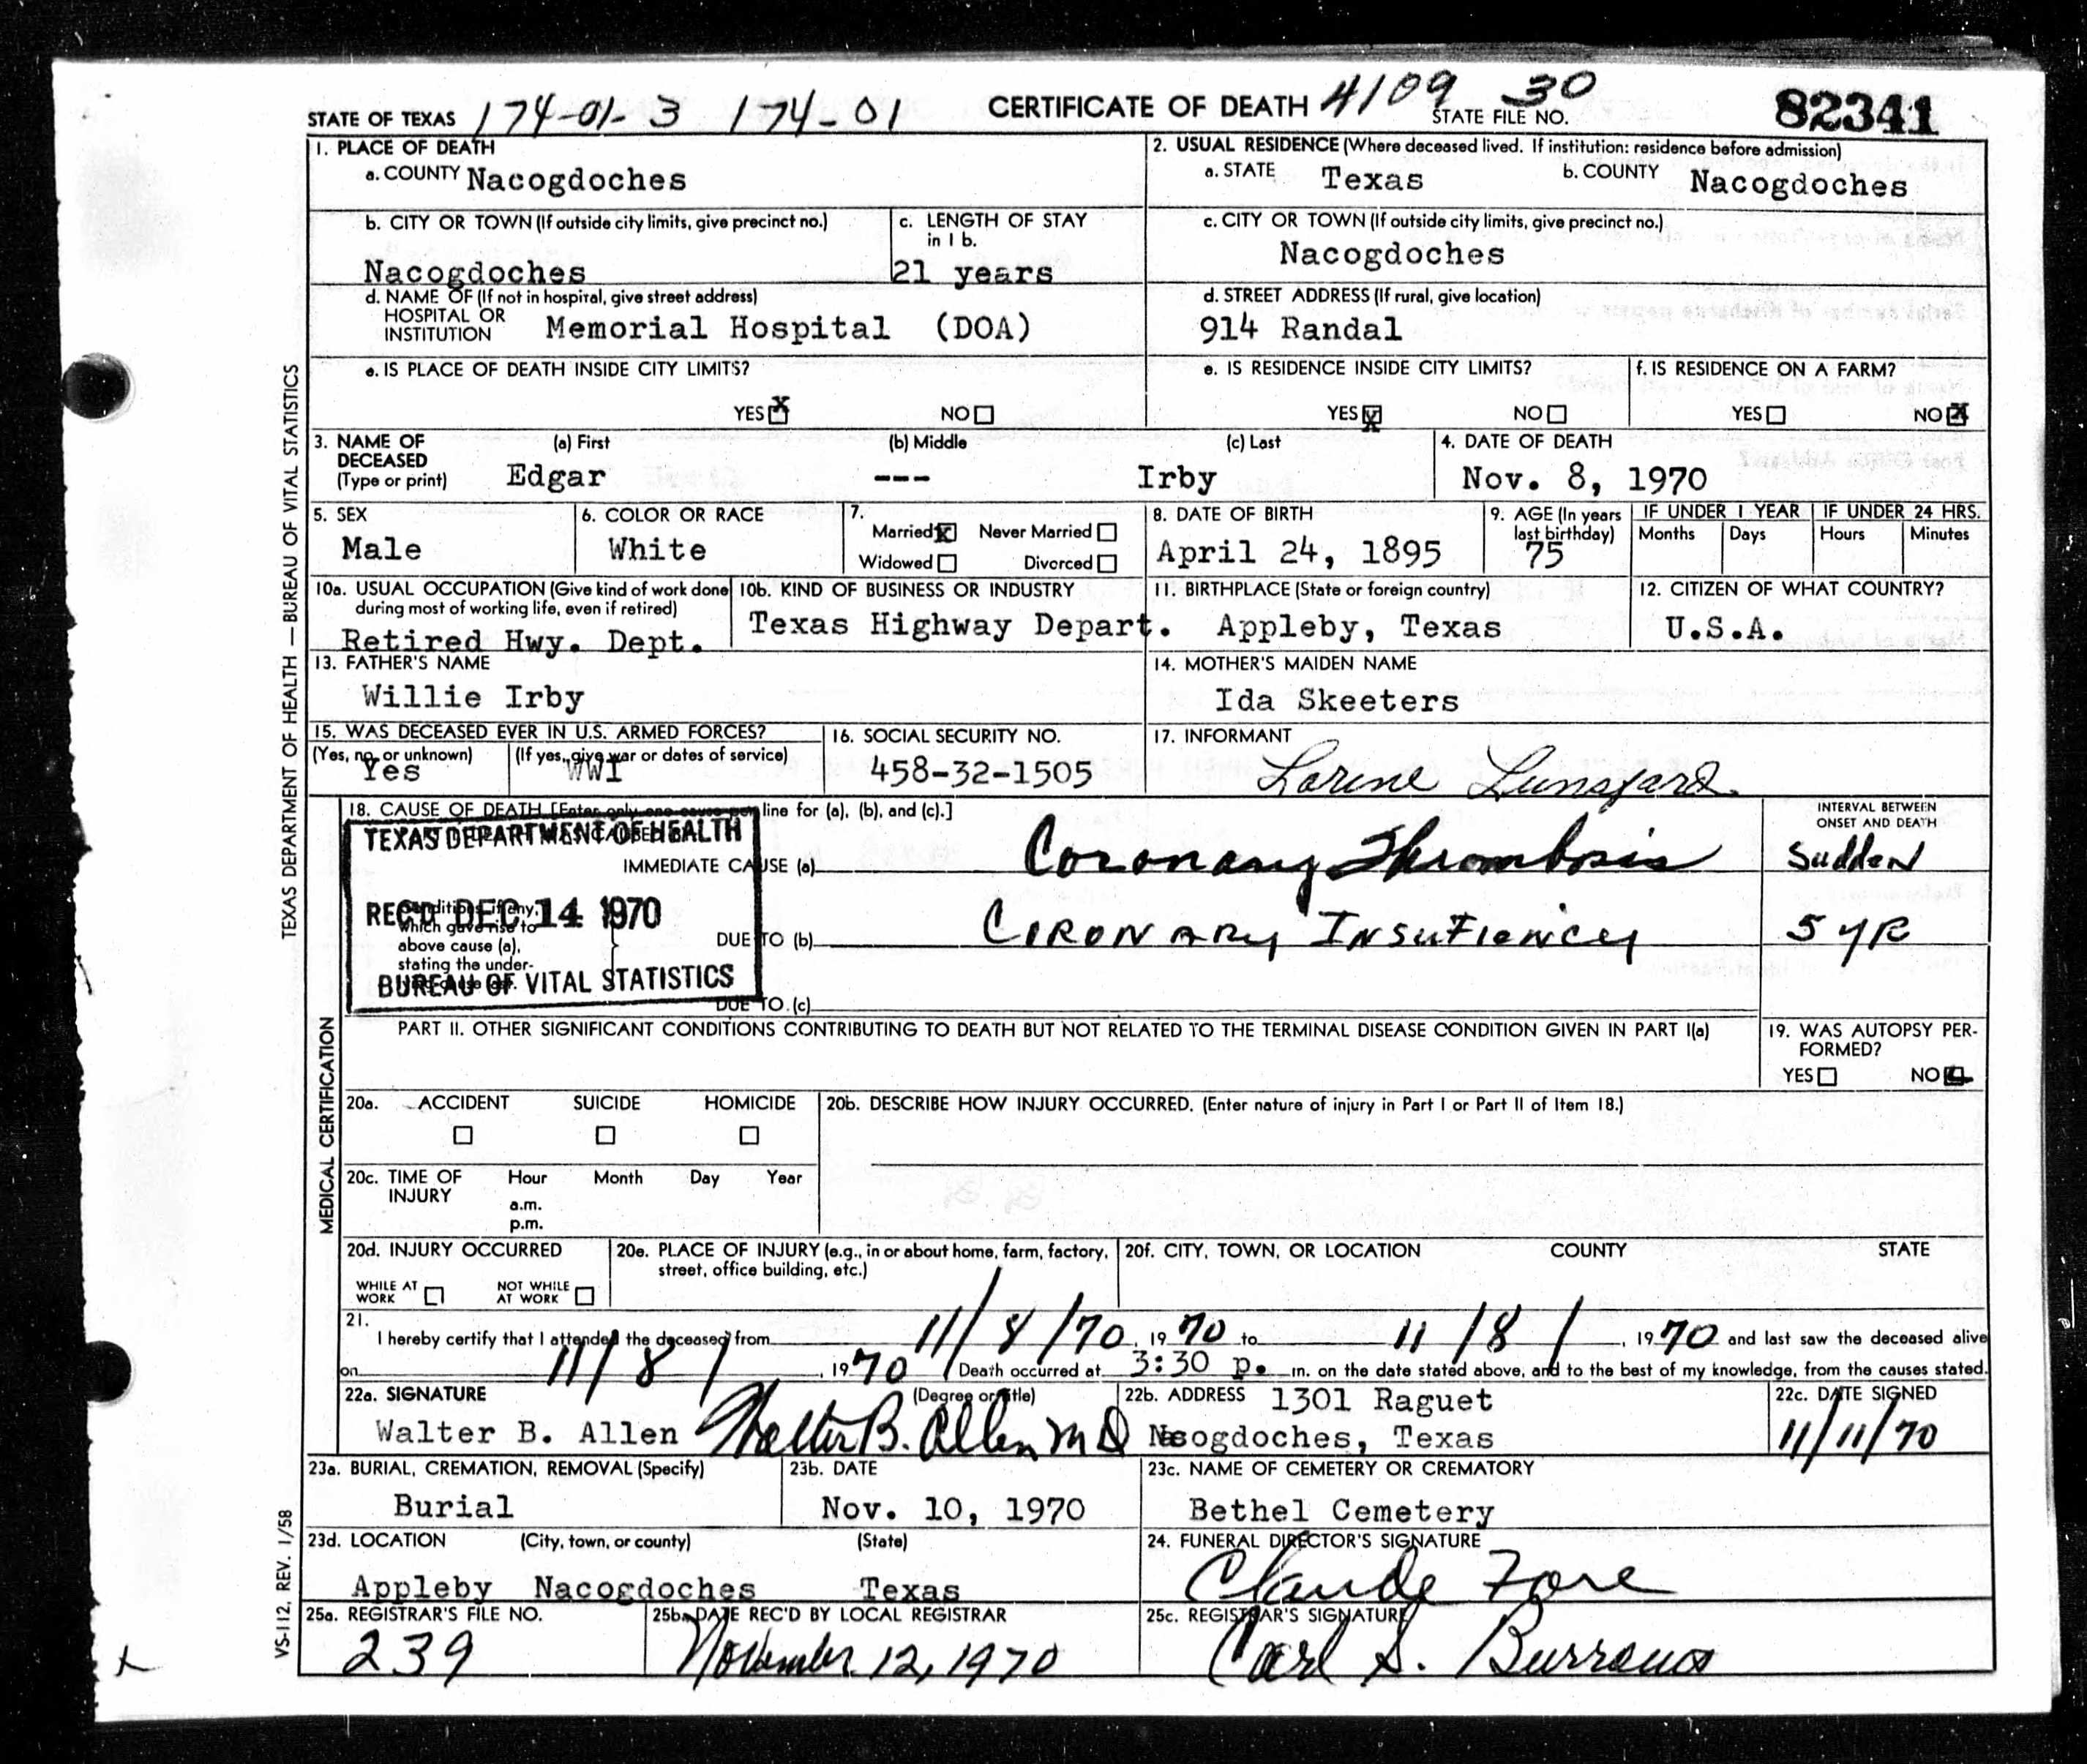 STATE OF TEXAS 174-01-3 174-01 CERTIFICATE OF DEATH 4109 30 STATE FILE NO. 82341
1. PLACE OF DEATH
a. COUNTY Nacogdoches
2. USUAL RESIDENCE (Where deceased lived. If institution: residence before admission)
a. STATE Texas b. COUNTY Nacogdoches
b. CITY OR TOWN (If outside city limits, give precinct no.)
Nacogdoches
c. LENGTH OF STAY
in 1 b.
21 years
c. CITY OR TOWN (If outside city limits, give precinct no.)
Nacogdoches
d. NAME OF (If not in hospital, give street address)
HOSPITAL OR
INSTITUTION Memorial Hospital (DOA)
d. STREET ADDRESS (If rural, give location)
914 Randal
e. IS PLACE OF DEATH INSIDE CITY LIMITS?
YES X NO
e. IS RESIDENCE INSIDE CITY LIMITS?
YES X NO
f. IS RESIDENCE ON A FARM?
YES NO X
3. NAME OF
DECEASED
(Type or print)
(a) First (b) Middle (c) Last
Edgar --- Irby
4. DATE OF DEATH
Nov. 8, 1970
5. SEX
Male
6. COLOR OR RACE
White
7.
Married X Never Married
Widowed Divorced
8. DATE OF BIRTH
April 24, 1895
9. AGE (In years
last birthday)
75
IF UNDER 1 YEAR
Months Days
IF UNDER 24 HRS.
Hours Minutes
10a. USUAL OCCUPATION (Give kind of work done
during most of working life, even if retired)
Retired Hwy. Dept.
10b. KIND OF BUSINESS OR INDUSTRY
Texas Highway Depart.
11. BIRTHPLACE (State or foreign country)
Appleby, Texas
12. CITIZEN OF WHAT COUNTRY?
U.S.A.
13. FATHER'S NAME
Willie Irby
14. MOTHER'S MAIDEN NAME
Ida Skeeters
15. WAS DECEASED EVER IN U.S. ARMED FORCES?
(Yes, no, or unknown) (If yes, give war or dates of service)
Yes WWI
16. SOCIAL SECURITY NO.
458-32-1505
17. INFORMANT
Lorene Lunsford
18. CAUSE OF DEATH [Enter only one cause per line for (a), (b), and (c).]
INTERVAL BETWEEN
ONSET AND DEATH
TEXAS DEPARTMENT OF HEALTH
IMMEDIATE CAUSE (a) Coronary Thrombosis Sudden
REC'D DEC 14 1970
Conditions, if any,
which gave rise to
above cause (a),
stating the under-
DUE TO (b) CORONARY INSUFIENCY 5 YR
BUREAU OF VITAL STATISTICS
DUE TO (c)
PART II. OTHER SIGNIFICANT CONDITIONS CONTRIBUTING TO DEATH BUT NOT RELATED TO THE TERMINAL DISEASE CONDITION GIVEN IN PART I(a)
19. WAS AUTOPSY PER-
FORMED?
YES NO
20a. ACCIDENT SUICIDE HOMICIDE
20b. DESCRIBE HOW INJURY OCCURRED. (Enter nature of injury in Part I or Part II of Item 18.)
20c. TIME OF
INJURY
Hour Month Day Year
a.m.
p.m.
20d. INJURY OCCURRED
WHILE AT
WORK
NOT WHILE
AT WORK
20e. PLACE OF INJURY (e.g., in or about home, farm, factory,
street, office building, etc.)
20f. CITY, TOWN, OR LOCATION COUNTY STATE
21.
I hereby certify that I attended the deceased from 11/8/70, 1970 to 11/8/, 1970 and last saw the deceased alive
on 11/8/, 1970 Death occurred at 3:30 p. m. on the date stated above, and to the best of my knowledge, from the causes stated.
22a. SIGNATURE (Degree or title)
Walter B. Allen Walter B. Allen MD
22b. ADDRESS 1301 Raguet
Nacogdoches, Texas
22c. DATE SIGNED
11/11/70
23a. BURIAL, CREMATION, REMOVAL (Specify)
Burial
23b. DATE
Nov. 10, 1970
23c. NAME OF CEMETERY OR CREMATORY
Bethel Cemetery
23d. LOCATION (City, town, or county) (State)
Appleby Nacogdoches Texas
24. FUNERAL DIRECTOR'S SIGNATURE
Claude Fore
25a. REGISTRAR'S FILE NO.
239
25b. DATE REC'D BY LOCAL REGISTRAR
November 12, 1970
25c. REGISTRAR'S SIGNATURE
Carl S. Burrows
TEXAS DEPARTMENT OF HEALTH — BUREAU OF VITAL STATISTICS
MEDICAL CERTIFICATION
VS-112, REV. 1/58